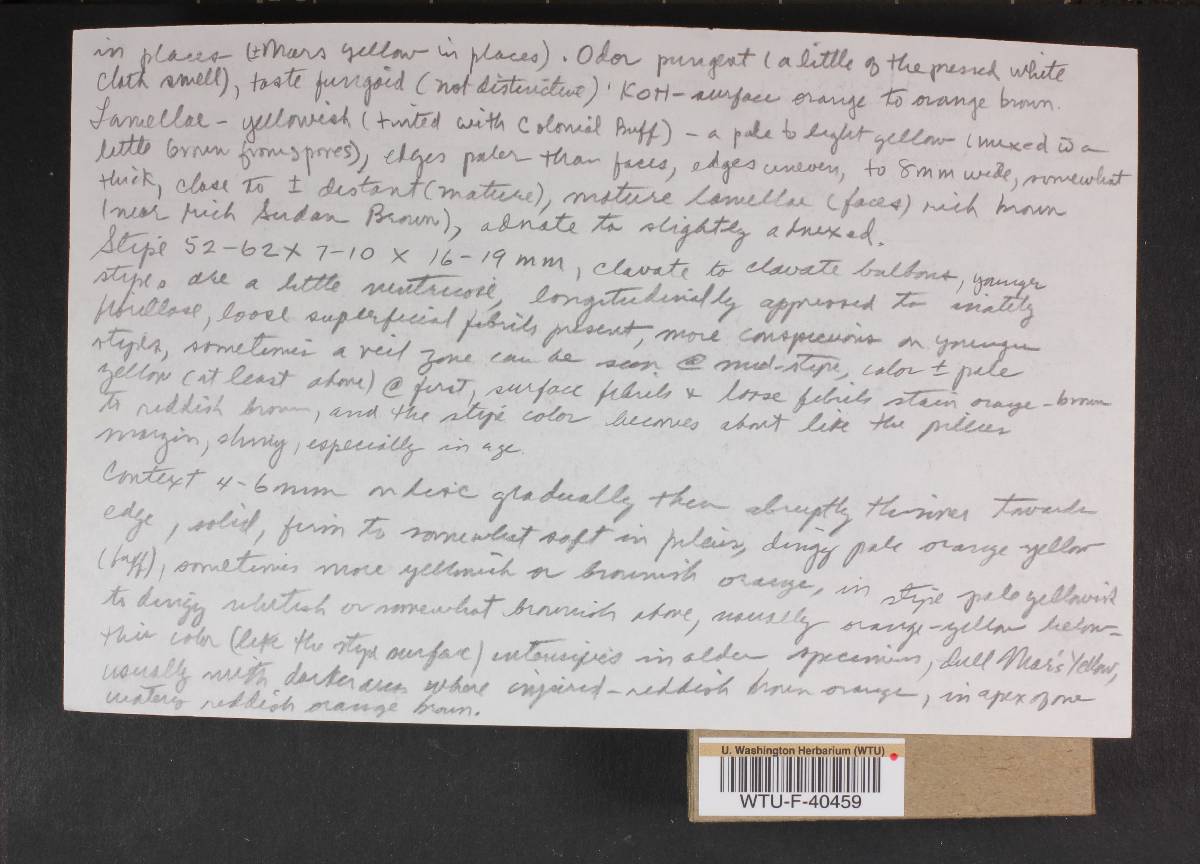 in places (± Mars yellow in places). Odor pungent (a little of the pressed white
cloth smell), taste fungoid (not distinctive). KOH - surface orange to orange brown.
Lamellae - yellowish (tinted with Colonial Buff) - a pale to light yellow (mixed w a
little brown from spores), edges paler than faces, edges uneven, to 8mm wide, somewhat
thick, close to ± distant (mature), mature lamellae (faces) rich brown
(near rich Sudan Brown), adnate to slightly adnexed.
Stipe 52-62 x 7-10 x 16-19 mm, clavate to clavate bulbous, younger
stipes are a little ventricose, longitudinally appressed to inately
fibrillose, loose superficial fibrils present, more conspicuous on younger
stipes, sometimes a veil zone can be seen @ mid-stipe, color ± pale
yellow (at least above) @ first, surface fibrils & loose fibrils stain orange-brown
to reddish brown, and the stipe color becomes about like the pileus
margin, shiny, especially in age.
Context 4-6mm on disc gradually then abruptly thinner towards
edge, solid, firm to somewhat soft in pileus, dingy pale orange-yellow
(buff), sometimes more yellowish or brownish orange, in stipe pale yellowish
to dingy whitish or somewhat brownish above, usually orange-yellow below-
this color (like the stipe surface) intensifies in older specimens, dull Mars Yellow,
usually with darker areas where injured - reddish brown orange, in apex of one
watery reddish orange brown.
U. Washington Herbarium (WTU)
WTU-F-40459